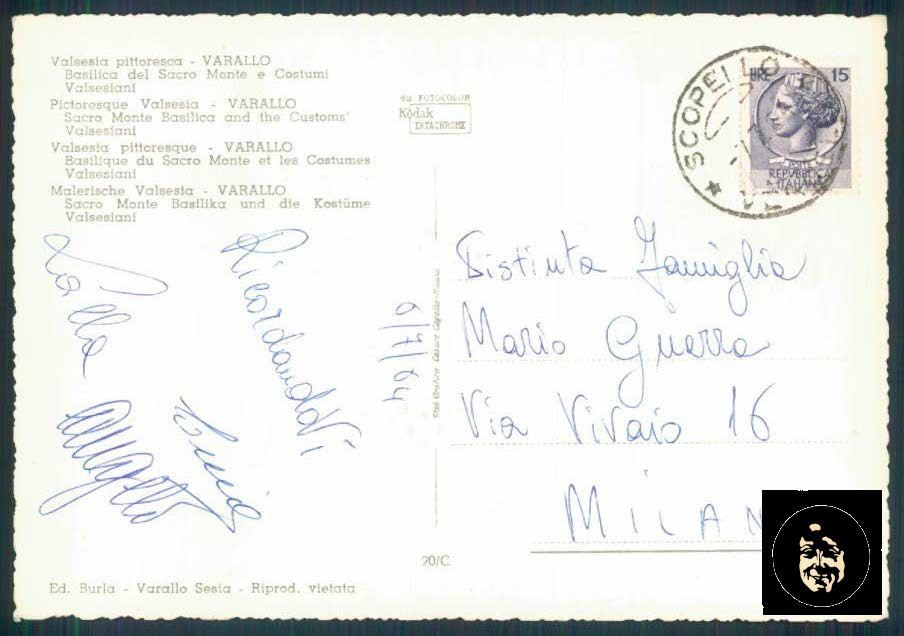 Valsesia pittoresca - VARALLO
Basilica del Sacro Monte e Costumi
Valsesiani
Pictoresque Valsesia - VARALLO
Sacro Monte Basilica and the Customs'
Valsesiani
Valsesia pittoresque - VARALLO
Basilique du Sacro Monte et les Costumes
Valsesiani
Malerische Valsesia - VARALLO
Sacro Monte Basilika und die Kostüme
Valsesiani
da FOTOCOLOR
Kodak
EKTACHROME
SCOPELLO
LIRE 15
REPUBBLICA
ITALIANA
RicordandoVi
6/7/64
Lucia
Distinta Famiglia
Mario Guerra
Via Vivaio 16
MILAN
20/C
Ed. Burla - Varallo Sesia - Riprod. vietata